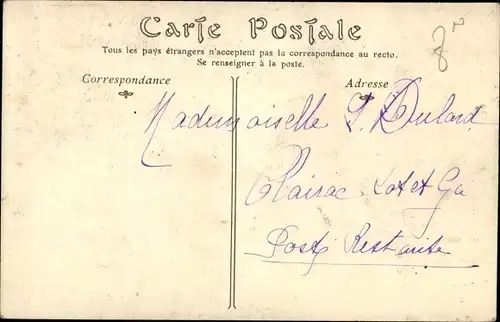 Carte Postale
Tous les pays étrangers n'acceptent pas la correspondance au recto.
Se renseigner à la poste.
Correspondance
Adresse
Mademoiselle
Clairac Lot et Ga
Poste Restante